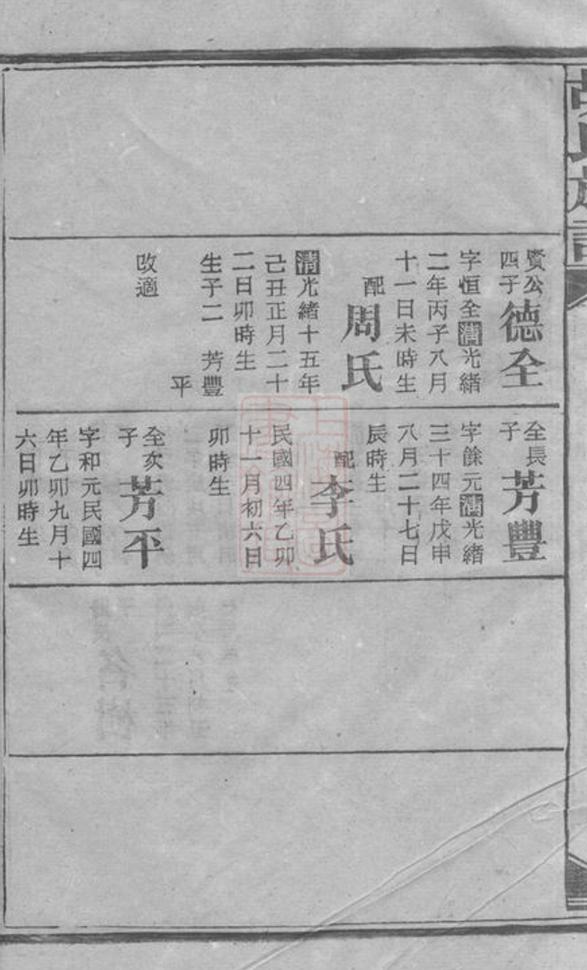 氏族譜
賓公
四子
德全
字恒全清光緒
二年丙子八月
十一日未時生
配
周氏
清光緒十五年
己丑正月二十
二日卯時生
生子二 芳豐
平
改適
全長
子
芳豐
字餘元清光緒
三十四年戊申
八月二十七日
辰時生
配
李氏
民國四年乙卯
十一月初六日
卯時生
全次
子
芳平
字和元民國四
年乙卯九月十
六日卯時生